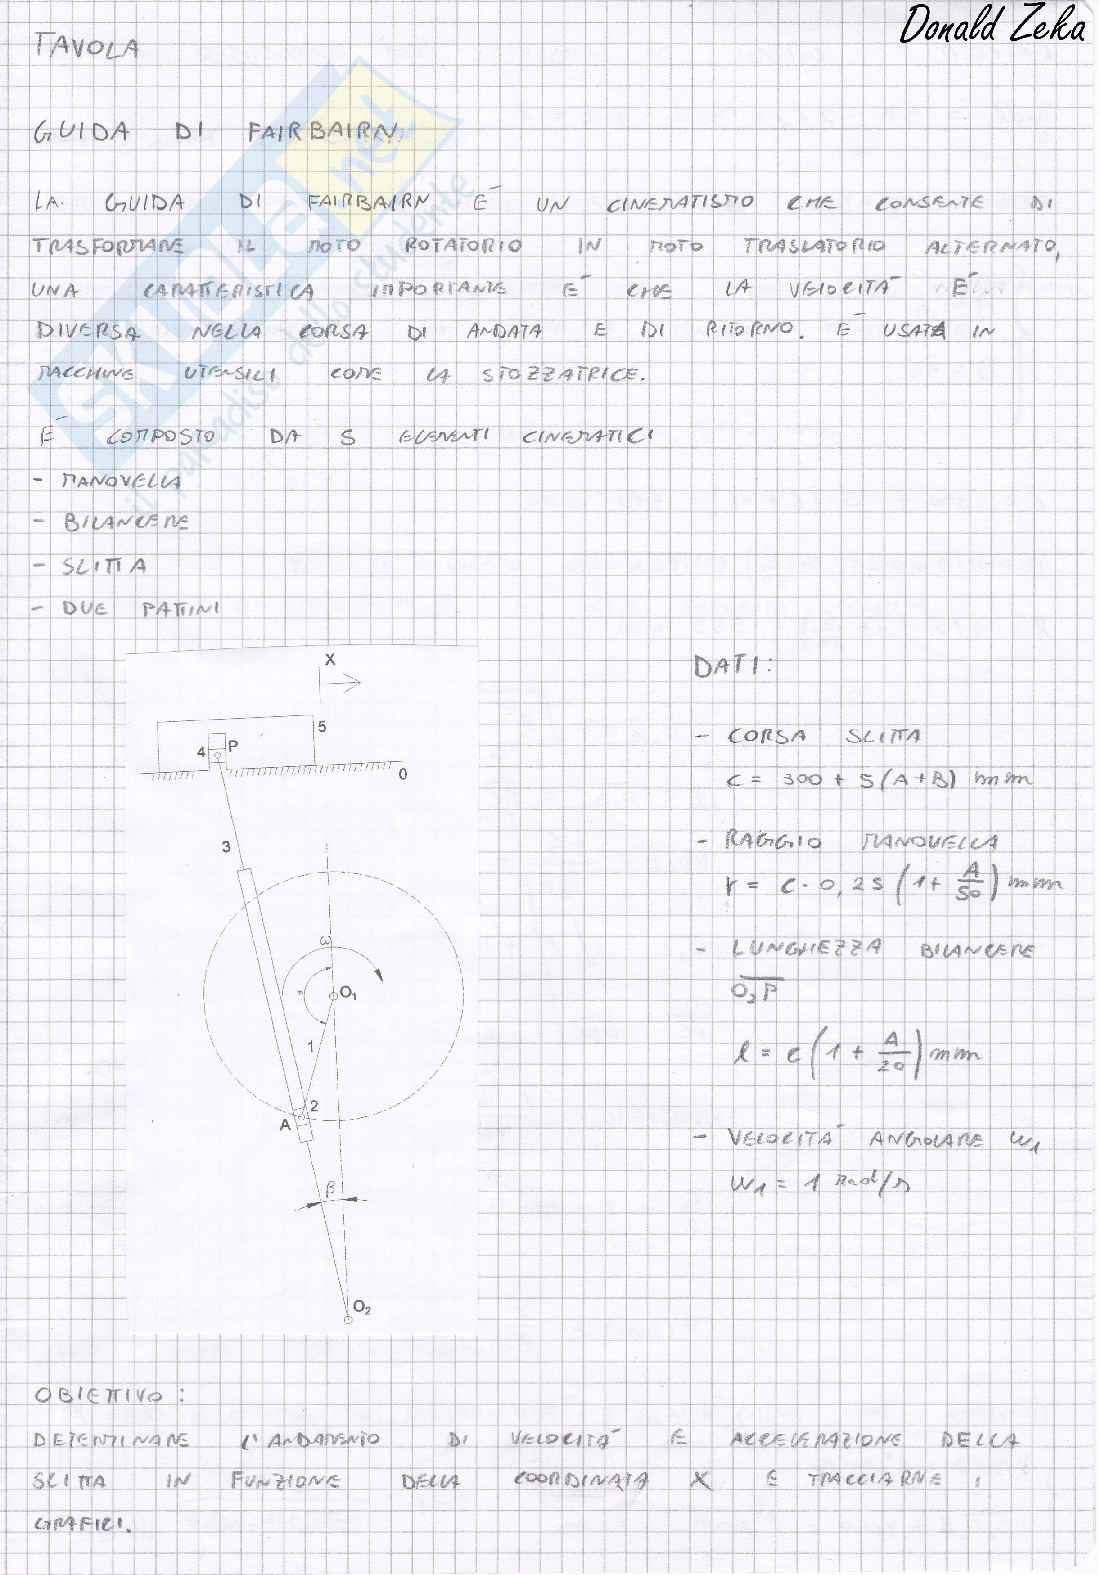 Donald Zeka
TAVOLA
GUIDA DI FAIRBAIRN
LA GUIDA DI FAIRBAIRN È UN CINEMATISMO CHE CONSENTE DI
TRASFORMARE IL MOTO ROTATORIO IN MOTO TRASLATORIO ALTERNATO,
UNA CARATTERISTICA IMPORTANTE È CHE LA VELOCITÀ È
DIVERSA NELLA CORSA DI ANDATA E DI RITORNO. È USATA IN
MACCHINE UTENSILI COME LA STOZZATRICE.
È COMPOSTO DA 5 ELEMENTI CINEMATICI
- MANOVELLA
- BILANCERE
- SLITTA
- DUE PATTINI
SKUOLA.net
il paradiso dello studente
X
5
4 P
0
3
ω
O1
1
2
A
β
O2
DATI:
- CORSA SLITTA
c = 300 + 5(A+B) mm
- RAGGIO MANOVELLA
r = c · 0,25 (1 + A/50) mm
- LUNGHEZZA BILANCERE
O2P
l = c (1 + A/20) mm
- VELOCITÀ ANGOLARE W1
W1 = 1 rad/s
OBIETTIVO:
DETERMINARE L'ANDAMENTO DI VELOCITÀ E ACCELERAZIONE DELLA
SLITTA IN FUNZIONE DELLA COORDINATA X E TRACCIARNE I
GRAFICI.